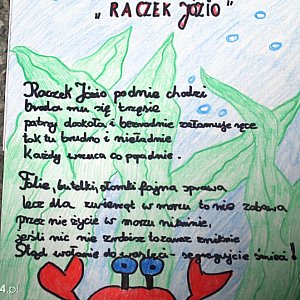 „RACZEK JÓZIO"
Raczek Józio podnie chodzi
broda mu się trzęsie
patrzy dookoła, i bezradnie załamuje ręce
tak tu brudno i nieładnie
Każdy wrzuca co popadnie.
Folie, butelki, słomki fajna sprawa
lecz dla zwierząt w morzu to nie zabawa
przez nie życie w morzu niknie,
jeśli nic nie zrobisz to zaraz zniknie
Stąd wołanie do was leci - segregujcie śmieci!
4.pl